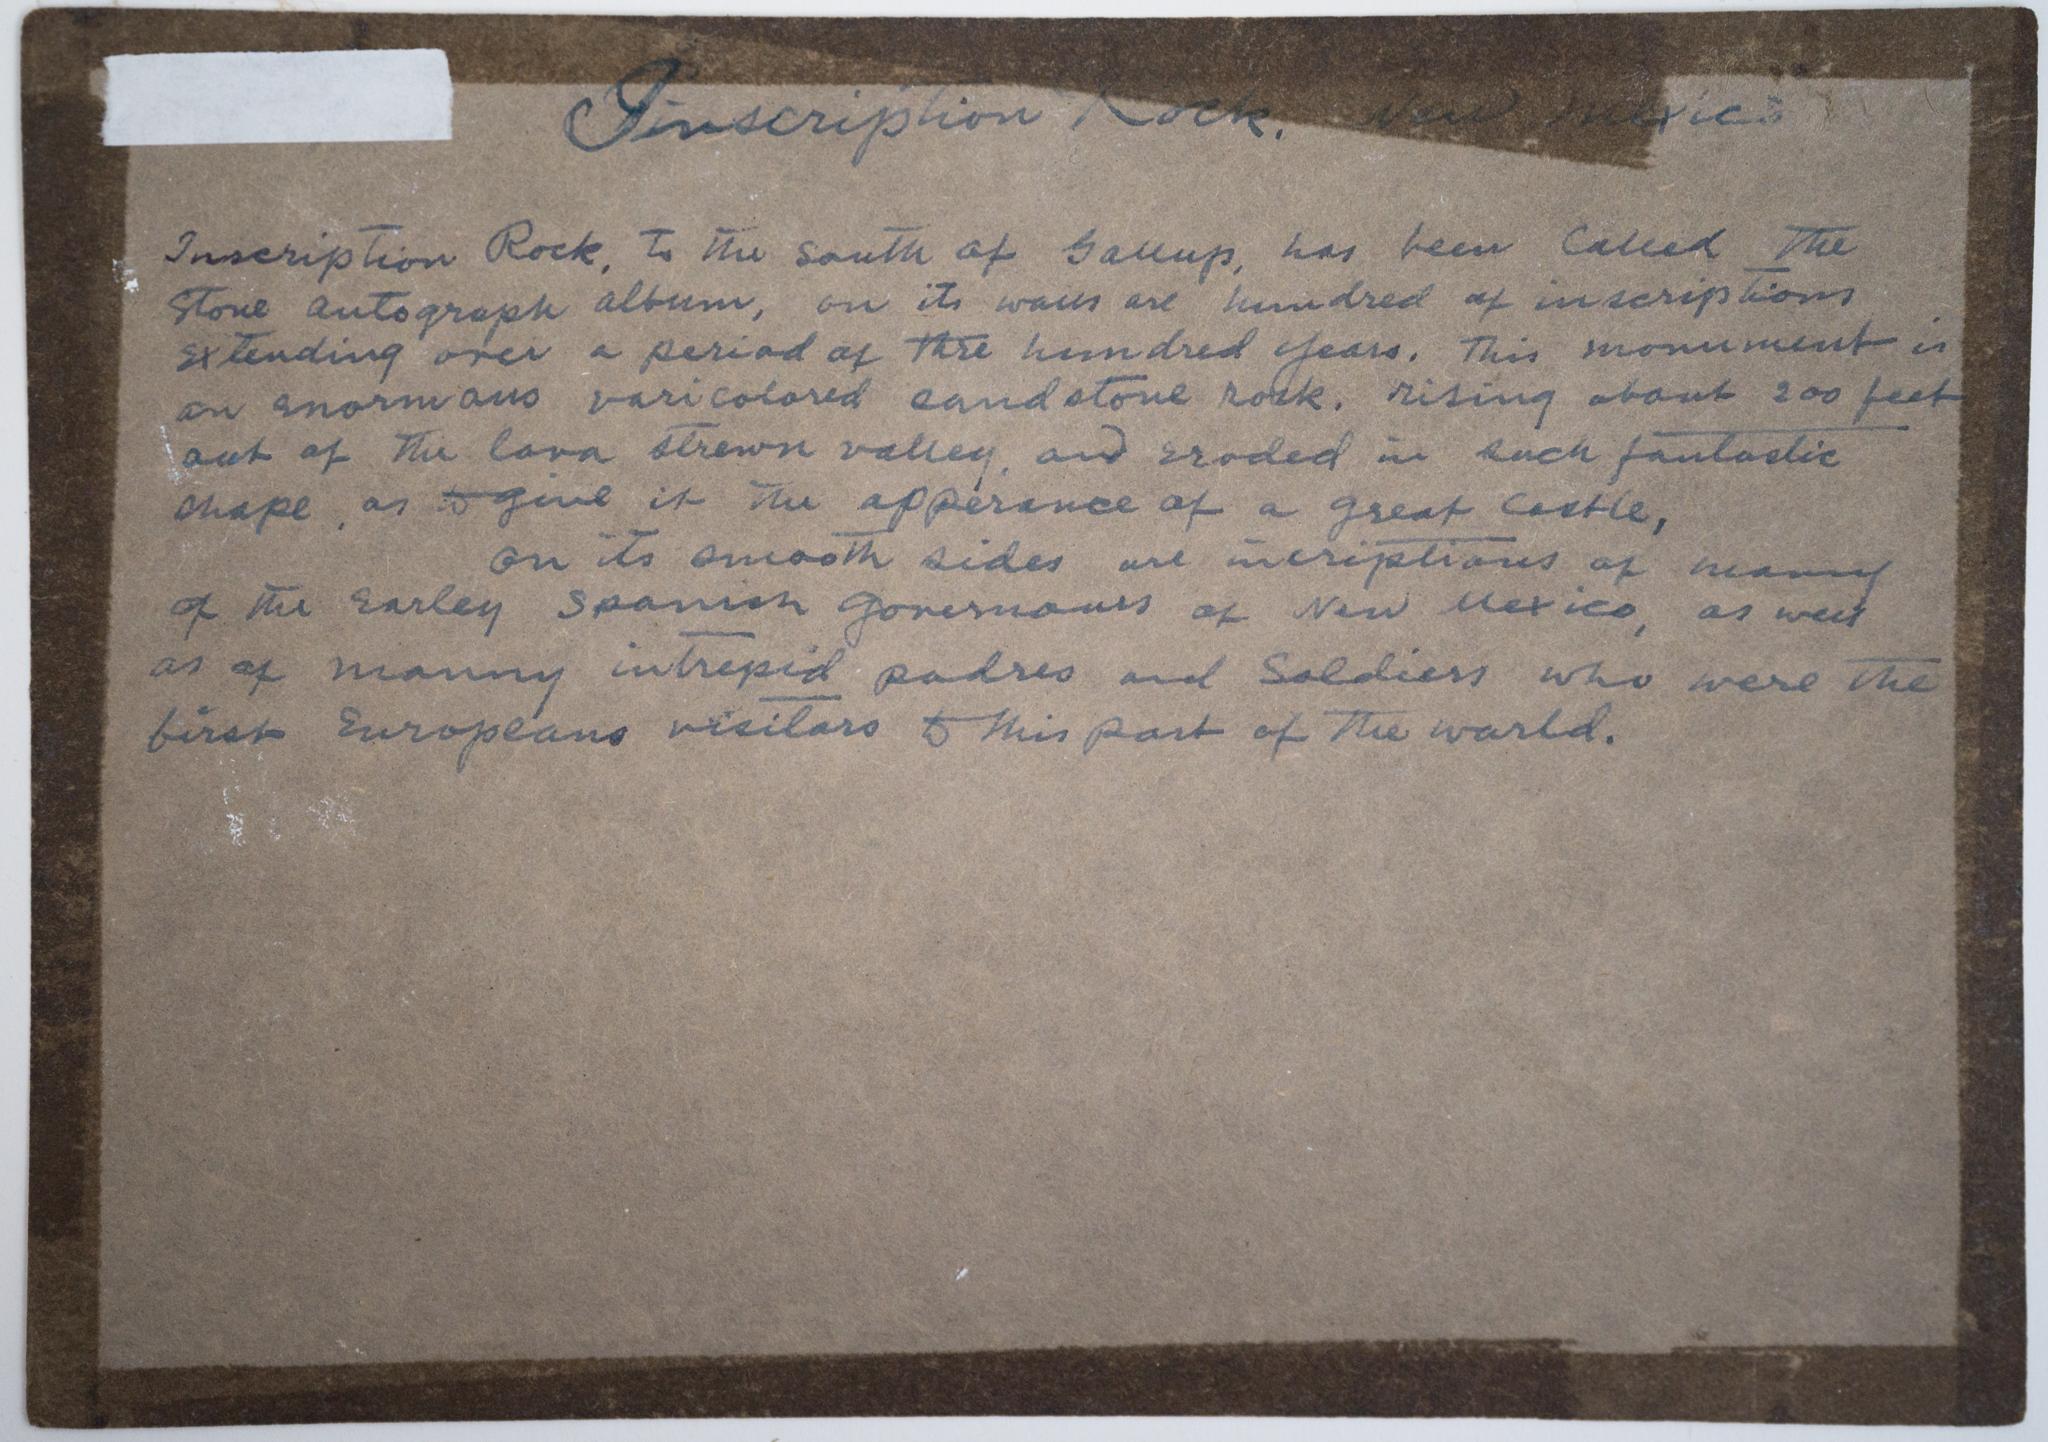 Inscription Rock. New Mexico
Inscription Rock, to the south of Gallup, has been Called The
Stone autograph album, on its walls are hundred of inscriptions
extending over a period of thre hundred years. This monument is
an enormous varicolored sandstone rock. rising about 200 feet
out of the lava strewn valley, and eroded in such fantastic
shape, as to give it the apperance of a great Castle,
on its smooth sides are incriptions of manny
of the Earley Spanish Governours of New Mexico, as well
as of manny intrepid padres and Soldiers who were the
first Europeans visitors to this part of the world.